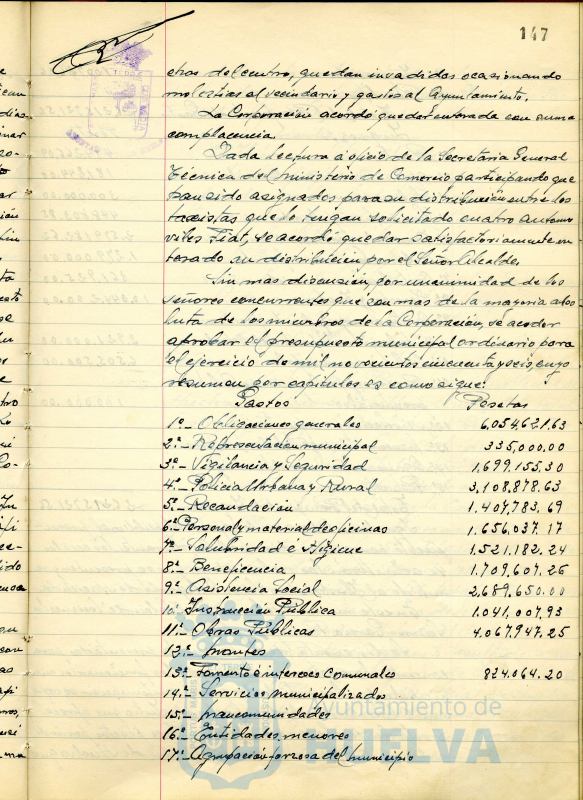 147
etros del centro, quedan invadidos ocasionando
molestias al vecindario y gastos al Ayuntamiento.
La Corporación acordó quedar enterada con suma
complacencia.
Dada lectura a oficio de la Secretaría General
Técnica del Ministerio de Comercio participando que
han sido asignados para su distribución entre los
taxistas que lo tengan solicitado cuatro automo
viles Fiat, se acordó quedar satisfactoriamente en
terado su distribución por el Señor Alcalde.
Sin mas discusión por unanimidad de los
señores concurrentes que son mas de la mayoria abso
luta de los miembros de la Corporación, se acordó
aprobar el presupuesto municipal ordinario para
el ejercicio de mil novecientos cincuenta y seis, cuyo
resumen por capítulos es como sigue:
Gastos Pesetas
1º.- Obligaciones generales 6.054.621.63
2º.- Representación municipal 335,000.00
3º.- Vigilancia y Seguridad 1,699,155.30
4º.- Policía Urbana y Rural 3,108,878.63
5º.- Recaudación 1.407,783.69
6º.- Personal y material de oficinas 1.656,037.17
7º.- Salubridad e Higiene 1.521,182.24
8º.- Beneficencia 1.709,607.26
9º.- Asistencia Social 2,689,650.00
10º.- Instrucción Pública 1.041,007.93
11º.- Obras Públicas 4.067,947.25
12º.- Montes
13º.- Fomento é intereses comunales 824.064.20
14º.- Servicios municipalizados
15º.- Mancomunidades
16º.- Entidades menores
17º.- Agrupación forzosa del municipio
Ayuntamiento de
HUELVA